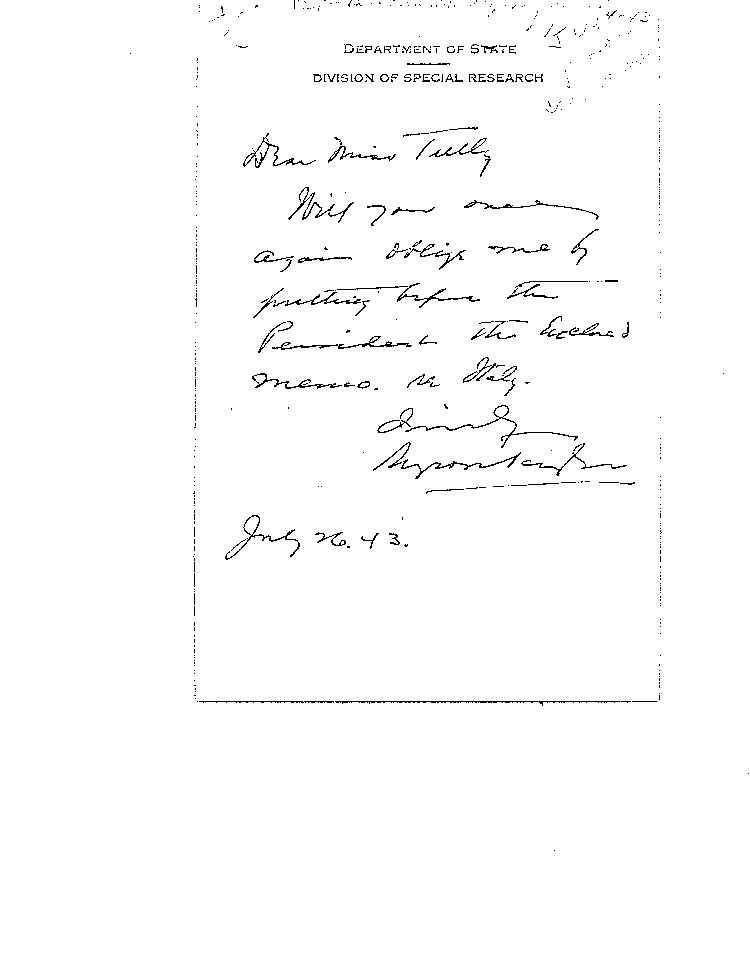 DEPARTMENT OF STATE
DIVISION OF SPECIAL RESEARCH
Dear Miss Tully
Will you once
again oblige me by
putting before the
President the enclosed
memo. re Italy.
Sincerely
Myron Taylor
July 26. 43.